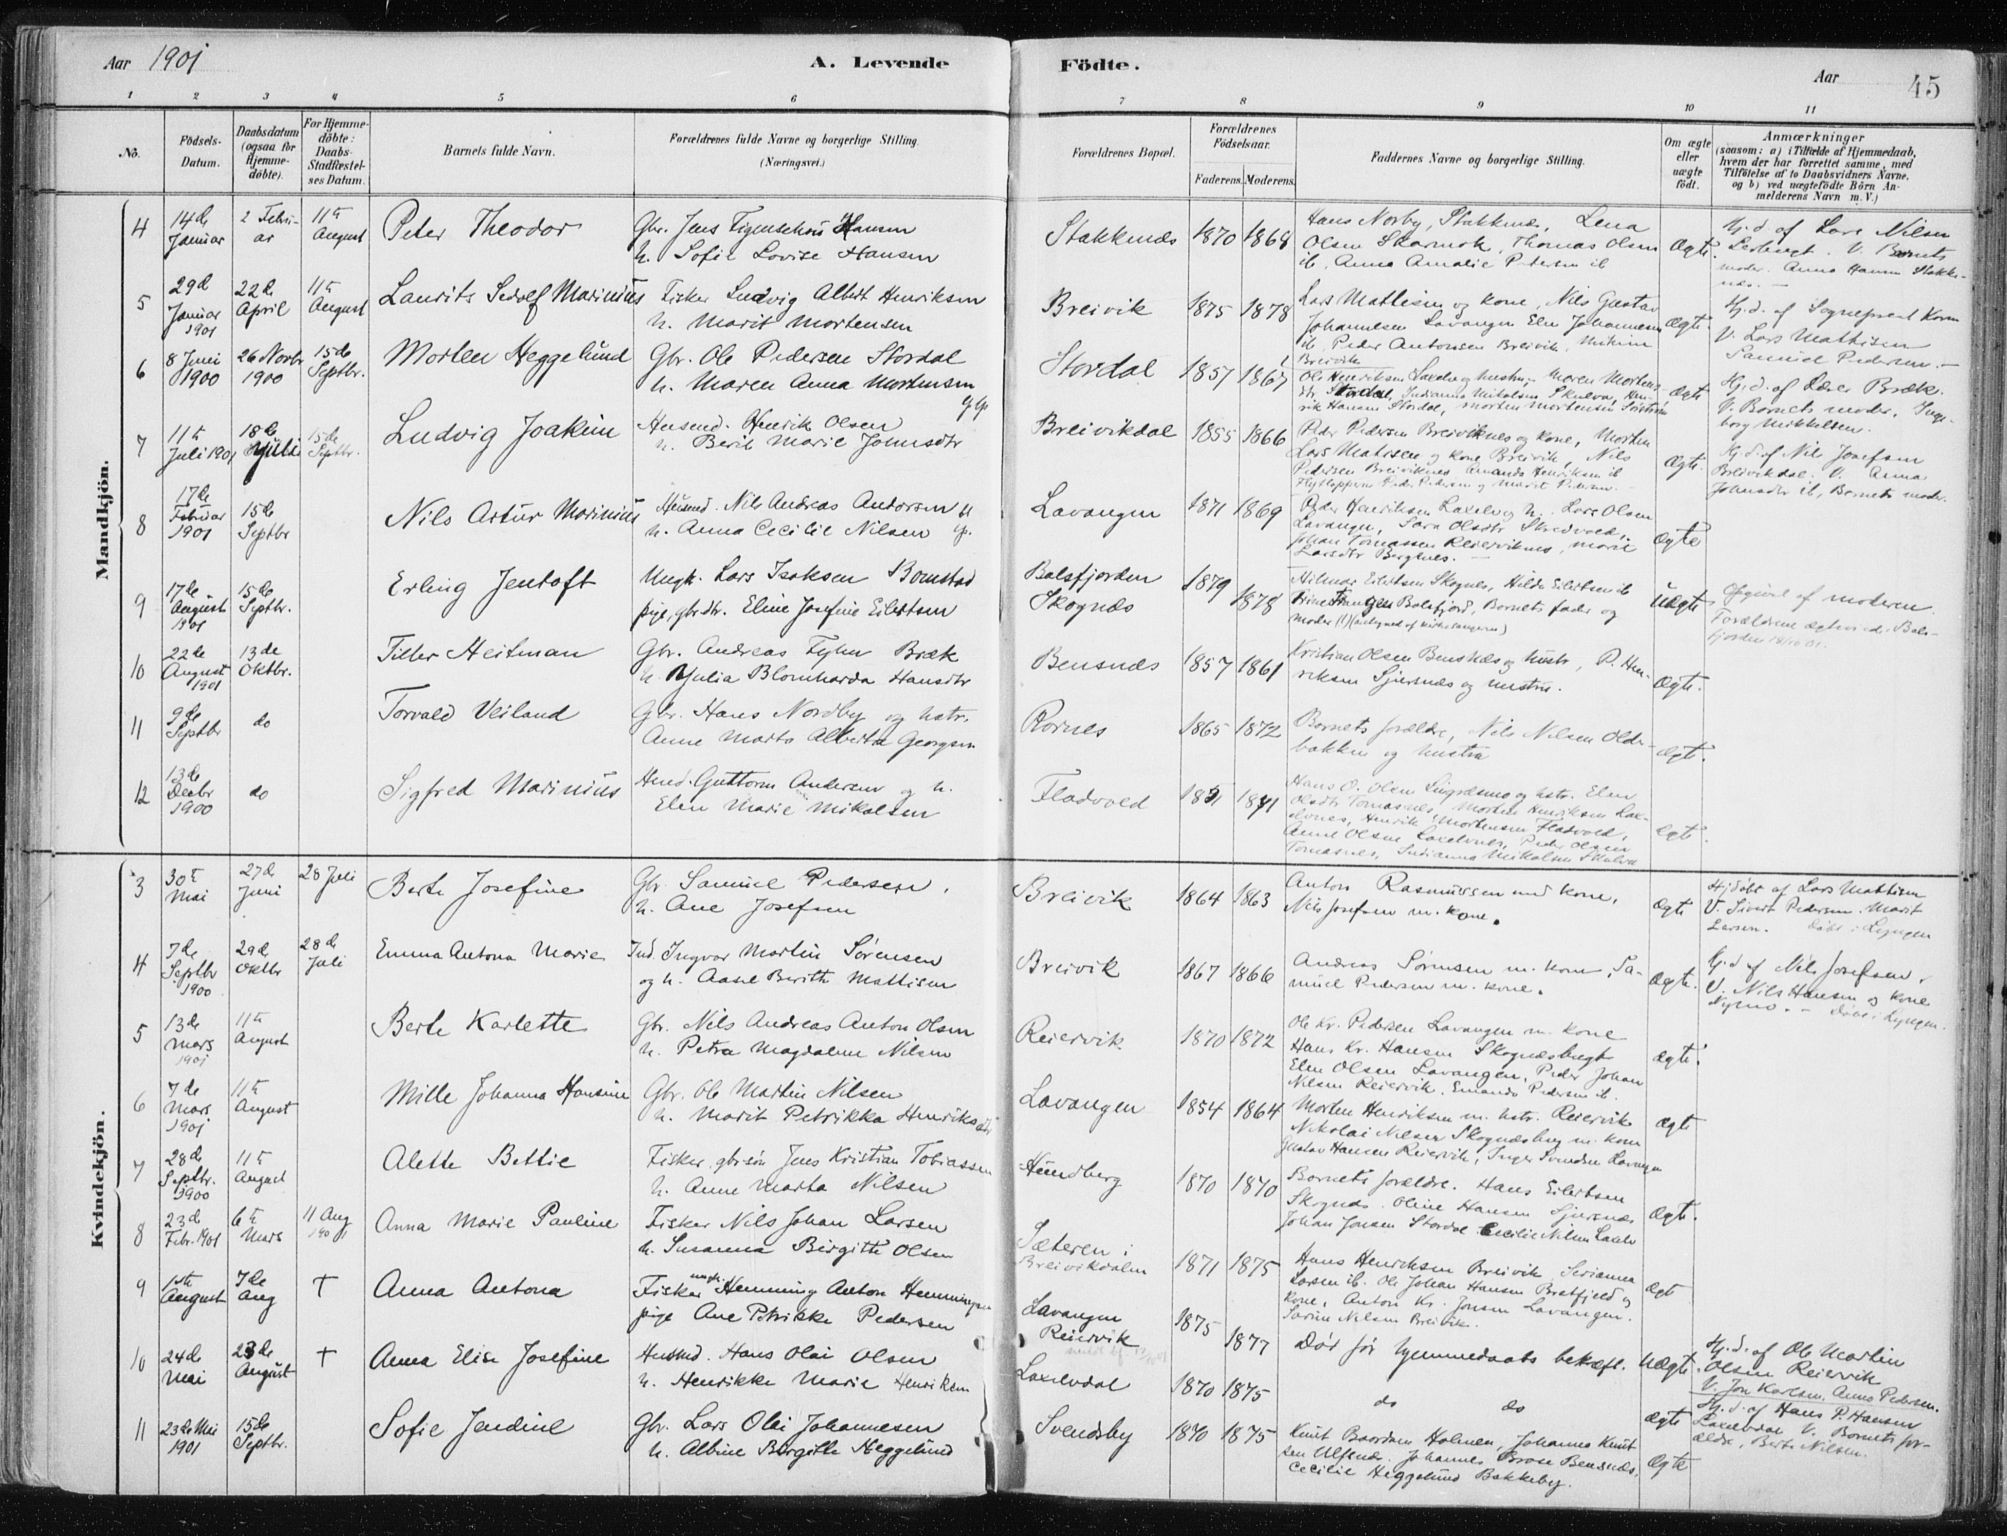 Aar 1901 A. Levende Födte. Aar 45
1 2 3 4 5 6 7 8 9 10 11
No. Födsels-Datum. Daabsdatum (ogsaa for Hjemme-döbte). For Hjemme-döbte: Daabs-Stadfæstel-ses Datum. Barnets fulde Navn. Forældrenes fulde Navne og borgerlige Stilling. (Næringsvei.) Forældrenes Bopæl. Forældrenes Födselsaar. Faderens. Moderens. Faddernes Navne og borgerlige Stilling. Om ægte eller uægte födt. Anmærkninger (saasom: a) i Tilfælde af Hjemmedaab, hvem der har forrettet samme, med Tilföielse af to Daabsvidners Navne, og b) ved uægtefödte Börn An-melderens Navn m. V.)
Mandkjön.
4 14de Januar 2 Febru-ar 11te August Peter Theodor Gbr. Jens Hansen
h. Sofie Lovise Hansen Stakknæs 1870 1868 Hans Norby, Stakknæs, Lena
Olsen Skarmok, Thomas Olsen
ib, Anna Amalie Pedersen ib Ægte. Hj.d af Lars Nilsen
V. Barnets
moder. Anna Hansen Stakke-
næs.
5 29de Januar 1901 22de April 11te August Laurits Sedolf Marinius Fisker Ludvig Albert Henriksen
h. Marit Mortensen Breivik 1875 1878 Lars Mattisen og kone, Nils Gustav
Johannesen Lavangen Elen Johannesen
ib, Peder Antonsen Breivik,
Breivik Ægte. Hj.d. af Sogneprest
V. Lars Mathisen
Samuel Pedersen.
6 8 Juni 1900 26 Novbr 1900 15de Septbr. Morten Heggelund Gbr. Ole Pedersen Stordal
h. Maren Anna Mortensen Stordal 1857 1867 Ole Henriksen Laxelv og hustru, Maren Mortens-
dtr. Stordal, Indianna Mikalsen Skulva, Hen-
rik Hansen Stordal, Morten Mortensen Ægte Hj.d. af Bræk.
V. Barnets moder, Inge-
borg Mikkelsen.
7 11te Juli 1901 18de Juli 15de Septbr. Ludvig Joakim Husmd. Henrik Olsen
h. Berit Marie Johnsdtr Breivikdal 1855 1866 Peder Pedersen Breiviknes og kone, Morten
Lars Matisen og kone Breivik, Nils
Pedersen Breiviknes Amanda Henriksen ib
Peder Pedersen og Marit Pedersen. Ægte. Hj.d. af Nils Josefsen
Breivikdal. V. Anna
Johnsdtr ib, Barnets moder.
8 17de Februar 1901 15de Septbr Nils Artur Marinius Husmd. Nils Andreas Andersen
h. Anna Cecilie Nilsen Lavangen 1871 1869 Peder Henriksen Laxelv og h. Lars Olsen
Lavangen, Sara Olsdtr Skredvold,
Johan Tomassen Reierviknes, Marie
Larsdtr Bergenes. Ægte
9 17de August 1901 15de Septbr. Erling Jentoft Ungk. Lars Isaksen Bomstad
pige, gbrdtr. Eline Josefine Eilertsen Balsfjorden
Skognæs 1879 1878 Hilmar Eilertsen Skognes, Hilda Eilertsen ib
Balsfjord, Barnets fader og
moder (!) (antegnet af kirkesangeren) Uægte Opgivet af moderen.
Forældrene ægteviede i Bals-
fjorden
10 22de August 1901 13de Oktbr. Tiller Heitman Gbr. Andreas Fyhn Bræk
h. Julia Blomharda Hansdtr Bensnæs 1857 1861 Kristian Olsen Bensnæs og hustr, P. Hen-
riksen Sjursnæs og hustru. Ægte.
11 9de Septbr do Torvald Veiland Gbr. Hans Nordby og hstr.
Anne Marta Alberta Georgsen Rornes 1865 1872 Barnets forældre, Nils Nilsen Olde-
bakken og hustru Ægte.
12 13de Decbr 1900 do Sigfred Marinius Husmd. Guttorm Andersen og h.
Elen Marie Mikalsen Fladvold 1851 1871 Hans O. Olsen og hstr. Elen
Olsdtr Tomasnes, Morten Henriksen Lax-
elvnes, Henrik Mortensen Fladvold,
Anne Olsen Laxelvnes, Peder Olsen
Tomasnes, Indianna Mikalsen Skulva Ægte.
Kvindekjön.
3 30te Mai 27de Juni 28 Juli Berte Josefine Gbr Samuel Pedersen.
h. Ane Josefsen Breivik 1864 1863 Anton Rasmussen med kone,
Nils Josefsen m. kone. Ægte Hjdøbt af Lars Mattisen
V. Sivert Pedersen. Marit
Larsen. Døbt i Lyngen
4 7de Septbr 1900 29de Oktbr 28de Juli Emma Antona Marie Ind. Ingvar Martin Sørensen
og h. Aase Berith Mattisen Breivik 1867 1866 Andreas Sørensen m. kone, Sa-
muel Pedersen m. kone. Ægte. Hj.d af Nils Josefsen.
V. Nils Hansen og kone
Nymo. - Døbt i Lyngen.
5 13de Mars 1901 11te August Berte Karlette Gbr. Nils Andreas Anton Olsen
h. Petra Magdalene Nilsen Reiervik 1870 1872 Ole Kr. Pedersen Lavangen m. kone
Hans Kr. Hansen Skognæsbugt
Elen Olsen Lavangen, Peder Johan
Nilsen Reiervik, Emanda Pedersen ib. Ægte.
6 7de Mars 1901 11te August Mille Johanna Hansine Gbr. Ole Martin Nilsen
h. Marit Petrikka Henriksdtr Lavangen 1854 1864 Morten Henriksen m. hstr. Reiervik
Nikolai Nilsen Skognæsbug m. kone
Gustav Hansen Reiervik, Inger Svendsen Lavangen Ægte
7 28de Septbr. 1900 11te August Alette Bettie Fisker, gbrsön Jens Kristian Tobiassen
h. Anne Marta Nilsen Hundberg 1870 1870 Barnets forældre. Hans Eilertsen
Skognæs. Oline Hansen Sjursnæs
Johan Jensen Stordal Cecilie Nilsen Laxelv Ægte.
8 23de Febr. 1901 6te Mars 11 Aug 1901 Anna Marie Pauline Fisker Nils Johan Larsen
h. Susanna Birgitte Olsen Sæteren i
Breivikdalen 1871 1875 Hans Henriksen Breivik, Serianna
Larsen ib. Ole Johan Hansen Bratfjeld og
kone, Anton Kr. Jensen Lavangen.
Sarine Nilsen Breivik. Ægte
9 1ste August 7de Aug † Anna Antona Fisker ungk. Hemming Anton Hemmingsen
pige Ane Petrikke Pedersen Lavangen
Reiervik 1875 1877 Død før hjemmedaabs bekræft. Uægte. Hj.d. af Ole Martin
Olsen Reiervik
V. Jon Karlsen, Anna Pedersen.
10 24de Mai 23de August † Anna Elise Josefine Husmd. Hans Olai Olsen
h. Henrikke Marie Henriksen Laxelvdal 1870 1875 do do Ægte Hj.d. af Hans P. Hansen
Laxelvdal V. Barnets for-
ældre, Berte Nilsen.
11 23de Mai 1901 15de Septbr. Sofie Jendine Gbr. Lars Olai Johannesen
h. Albine Birgitte Heggelund Svendsby 1870 1875 Knut Baardsen Holmen, Johanna Knut-
sen Ulfsnes, Johannes Brose Bensnæs,
Cecilie Heggelund Bakkeby. Ægte